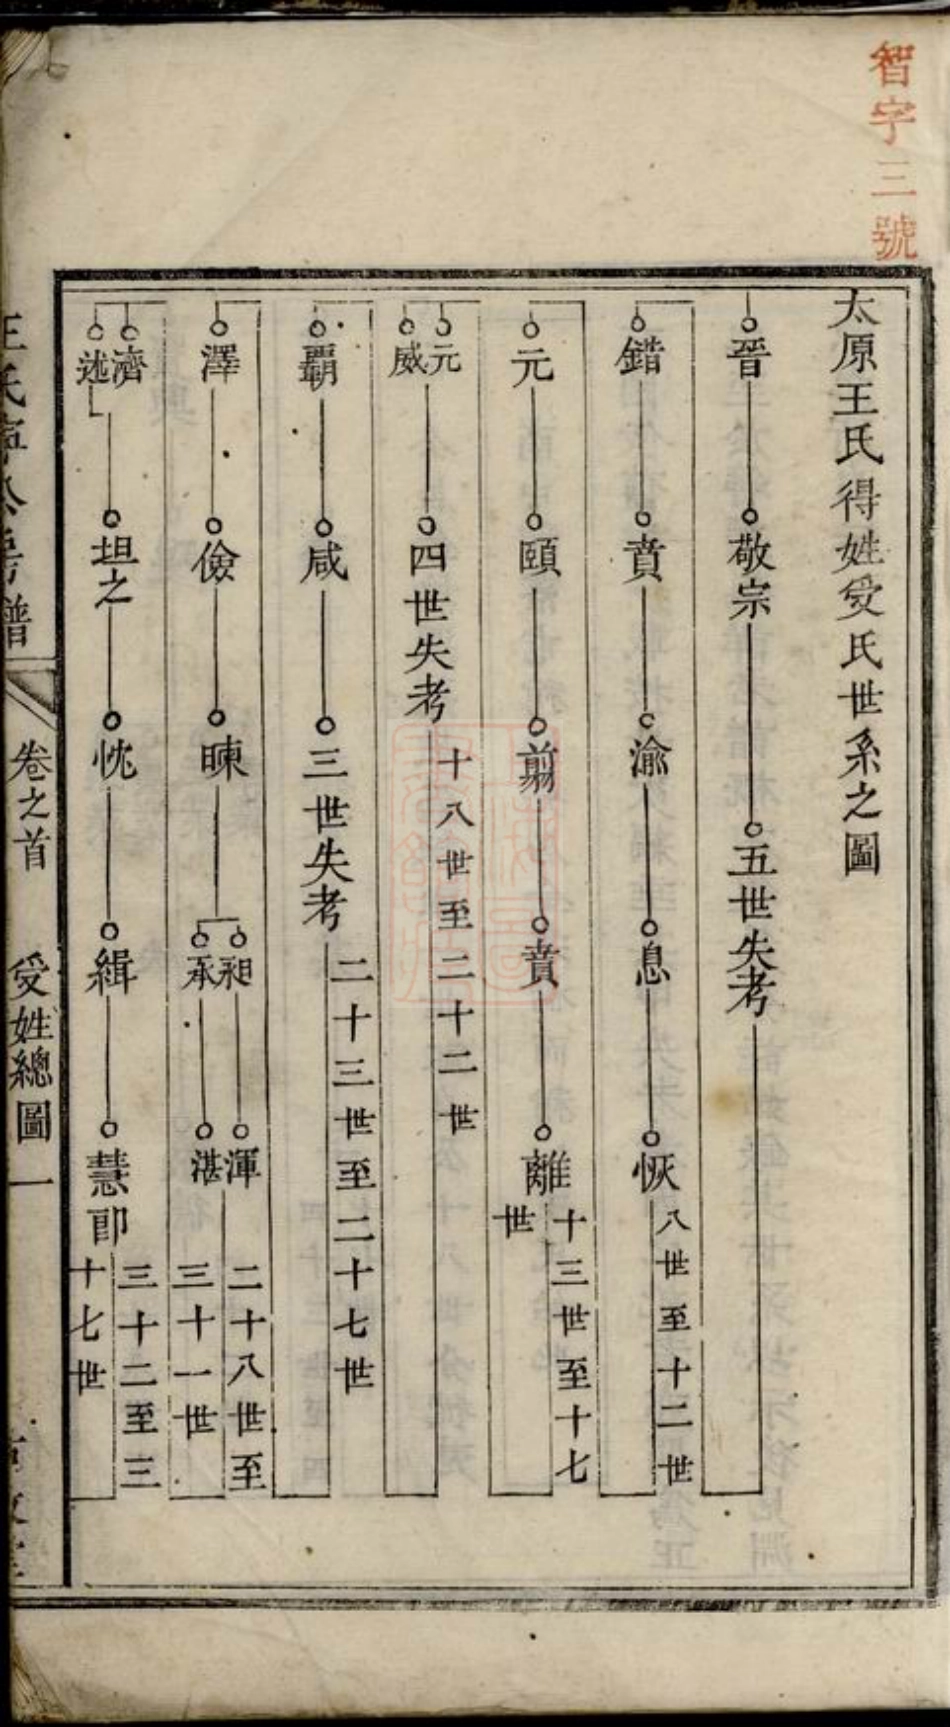 智字三號
太原王氏得姓受氏世系之圖
晉 敬宗 五世失考
錯 賁 渝 息 恢 八世至十二世
元 頤 翦 賁 離 十三世至十七世
元 威 四世失考 十八世至二十二世
霸 咸 三世失考 二十三世至二十七世
澤 儉 暕 昶 承 渾 湛 二十八世至三十一世
濟 述 坦之 忱 緝 慧郎 三十二至三十七世
卷之首 受姓總圖 一